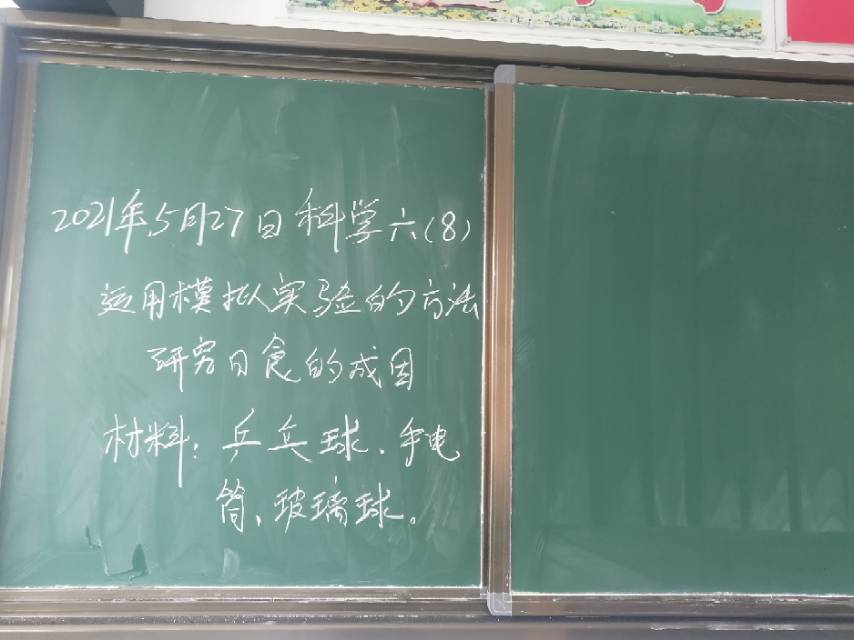 2021年5月27日科学六(8)
运用模拟实验的方法
研究日食的成因
材料：乒乓球、手电
筒、玻璃球。